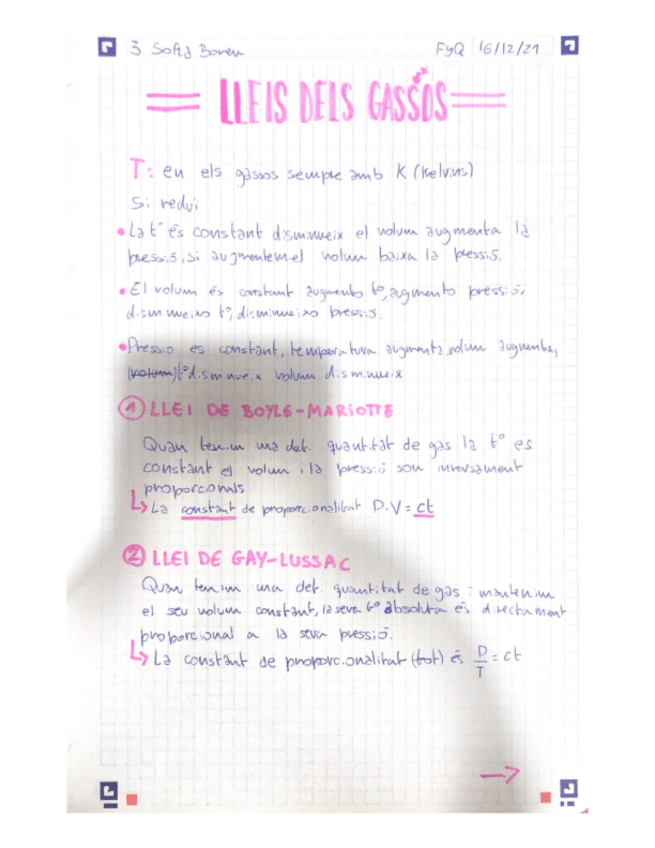 3 Sofia Boren FyQ 16/12/21
LLEIS DELS GASSOS
T: en els gassos sempre amb K (Kelvins)
Si redui
• La tº és constant disminueix el volum augmenta la
pressió, si augmentem el volum baixa la pressió.
• El volum és constant augmento tº, augmento pressió,
disminueixo tº, disminueixo pressió.
• Pressio es constant, temperatura augmenta, volum augmenta,
(volum) tº disminueix volum disminueix
1 LLEI DE BOYLE-MARIOTTE
Quan tenim una det. quantitat de gas la tº es
constant el volum i la pressió son inversament
proporcionals
↳ La constant de proporcionalitat P.V = ct
2 LLEI DE GAY-LUSSAC
Quan tenim una det. quantitat de gas i mantenim
el seu volum constant, la seva tº absoluta és directament
proporcional a la seva pressió.
↳ La constant de proporcionalitat és P/T = ct
→